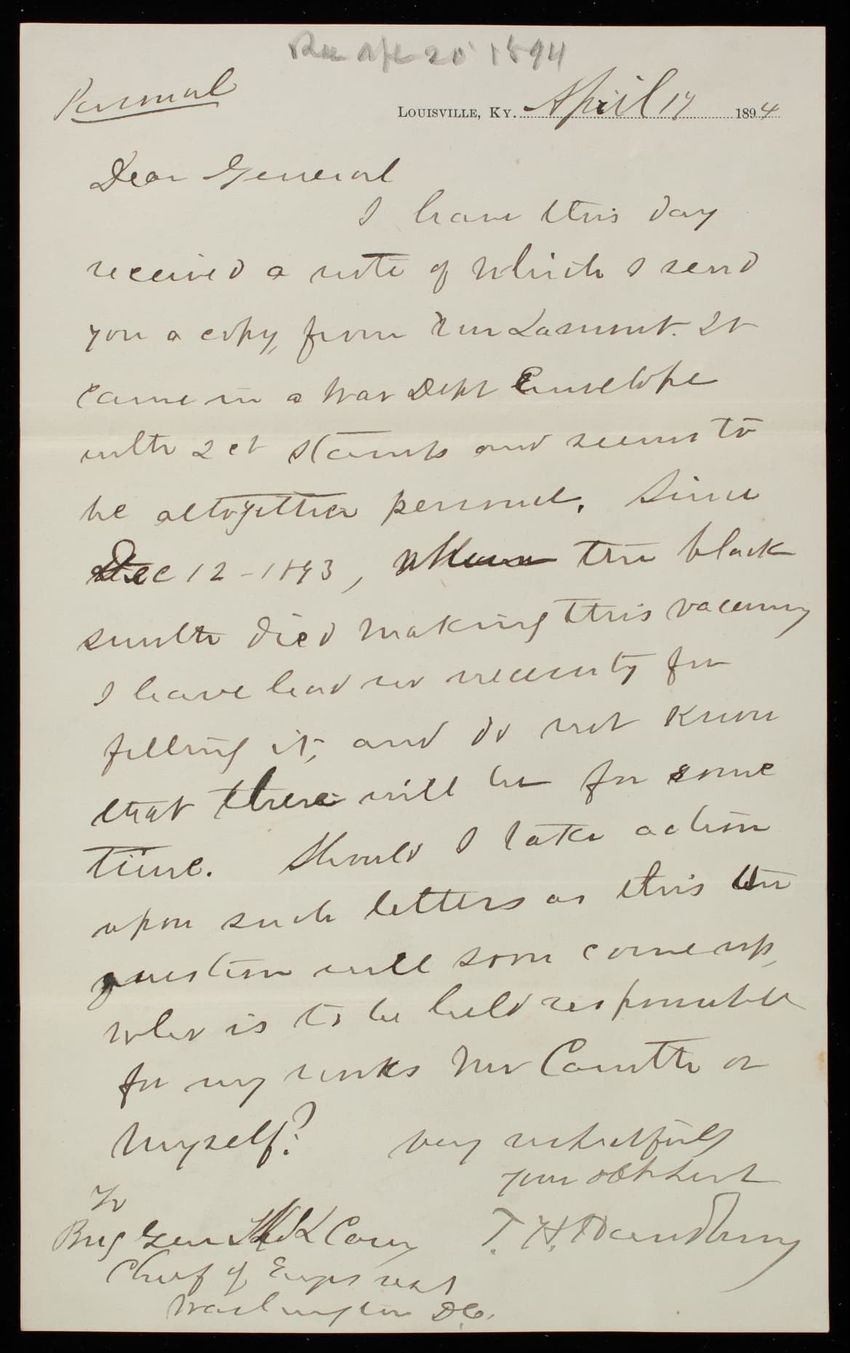 Rec Apl 20 1894
Personal
LOUISVILLE, KY. April 17 1894
Dear General
I have this day
received a note of which I send
you a copy, from Mr Lamont. It
came in a War Dept Envelope
with 2 ct stamp and seems to
be altogether personal. Since
Dec 12 - 1893, when the black
smith died making this vacancy
I have had no necessity for
filling it, and do not know
that there will be for some
time. Should I take action
upon such letters as this the
question will soon come up,
who is to be held responsible
for my works Mr Caruth or
Myself?
very respectfully
your obt servt
T. H. Handbury
To
Brig Gen Thos L Casey
Chief of Engrs USA
Washington DC.